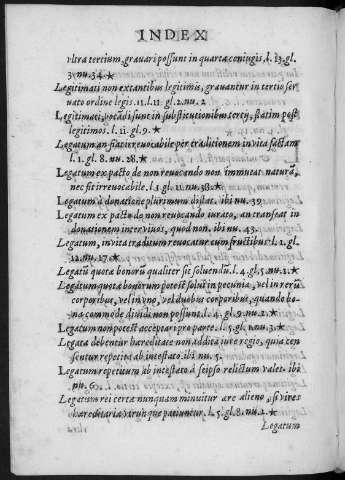 INDEX
vltra tertium, grauari possunt in quarta coniugis, l. 13. gl.
3. nu. 34. ★
Legitimati non extantibus legitimis, grauantur in tertio ser
uato ordine legis. 11. l. 11. gl. 2. nu. 2
Legitimati, vocādi sunt in substitutionibus tertij, statim post
legitimos. l. 11 gl. 9. ★
Legatum an fiat irreuocabile per traditionem in vita factam
l. 1. gl. 8. nu. 28. ★
Legatum ex pacto de non reuocando non immutat naturā,
nec fit irreuocabile. l. 1 gl. 11. nu. 38. ★
Legatum à donatione plurimum distat. ibi nu. 39.
Legatum ex pacto de non reuocando iurato, an transeat in
donationem inter viuos, quod non. ibi nu. 43.
Legatum, in vita traditum reuocatur cum fructibus l. 1. gl.
12. nu. 17. ★
Legatū quotæ bonorū qualiter sit soluendū. l. 4. gl. 5. nu. 1. ★
Legatum quotæ bonorum potest solui in pecunia, vel in rerū
corporibus, vel in vno, vel duobus corporibus, quando bo-
na commode diuidi non possunt. l. 4. gl. 9. nu. 2. ★
Legatum non potest acceptari pro parte. l. 5. gl. 1. nu. 3. ★
Legata debentur hæreditate non addita iure regio, quia cen
sentur repetita ab intestato ibi nu. 5.
Legatum repetitum ab intestato à seipso relictum valet ibi
nu. 6.
Legatum rei certæ nunquam minuitur ære alieno, si vires
hæreditariæ vtrunque patiuntur. l. 5. gl. 8. nu. 2. ★
Legatum